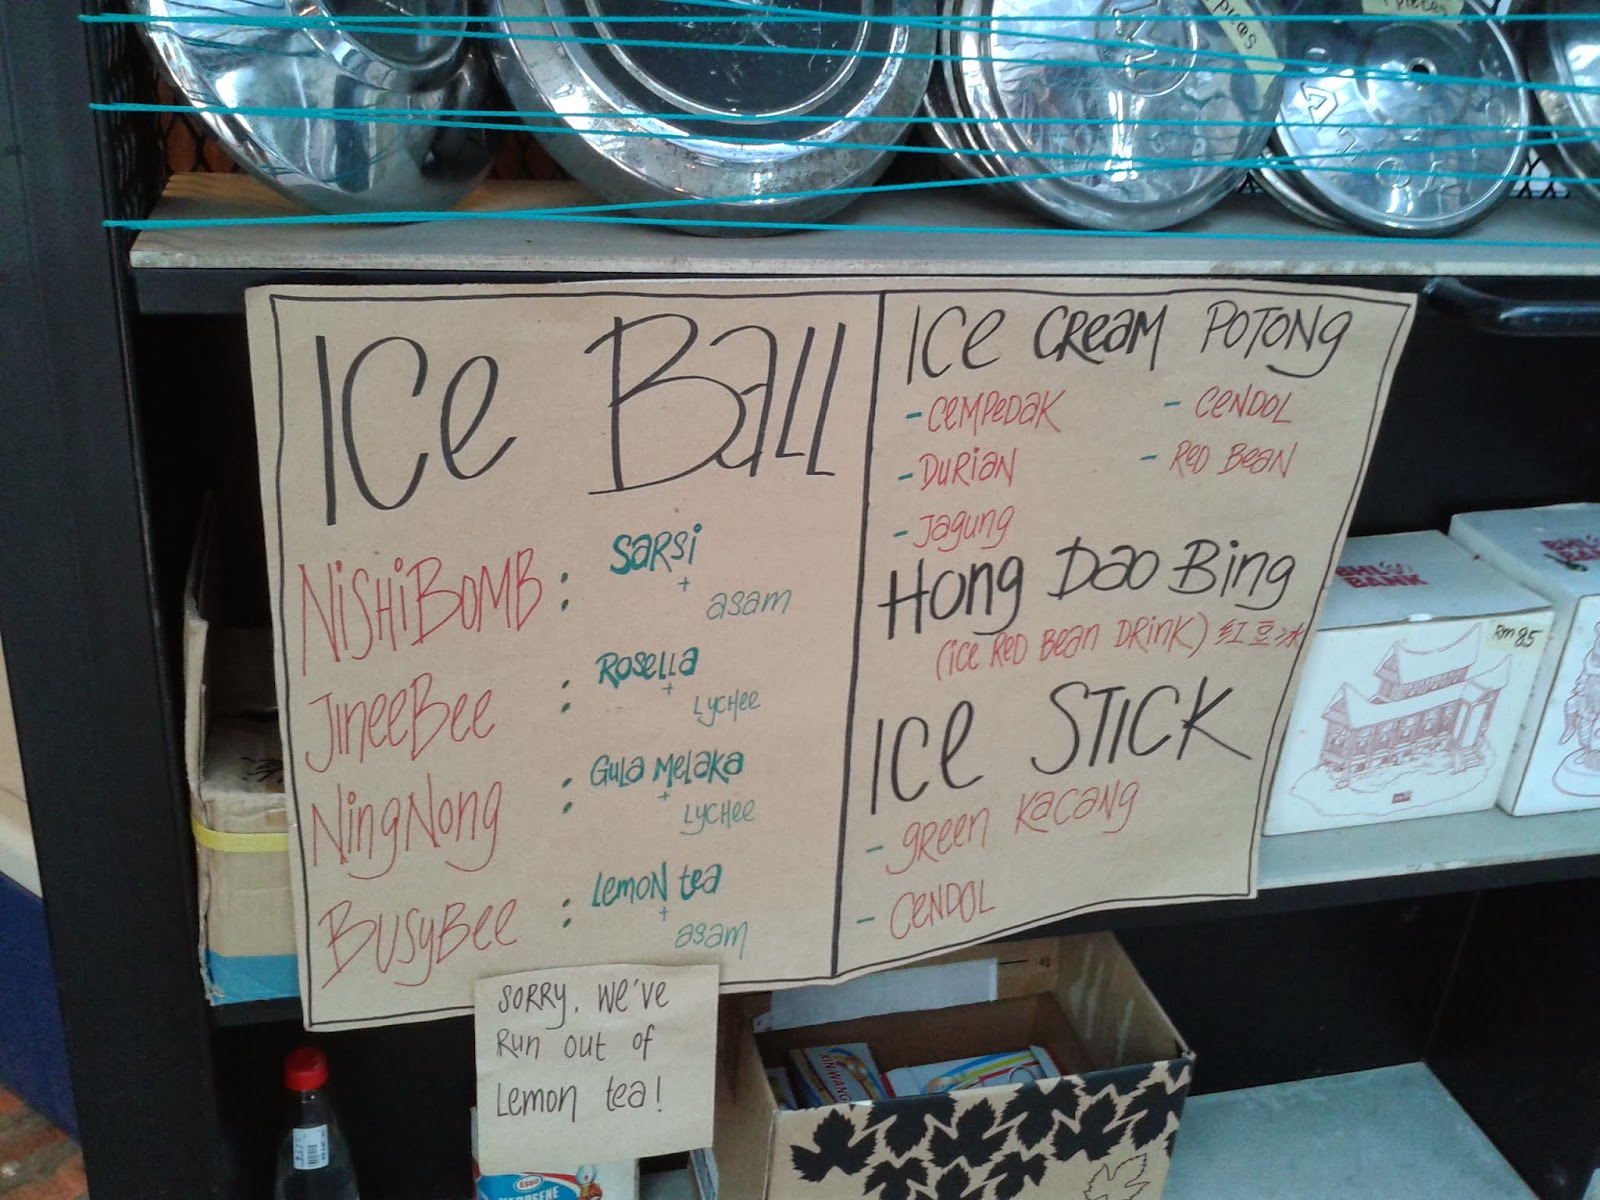 Ice Ball
NishiBomb : Sarsi
+
asam
JineeBee : Rosella
+
Lychee
NingNong : Gula Melaka
+
Lychee
BusyBee : Lemon tea
+
asam
Ice Cream Potong
- Cempedak
- Durian
- Jagung
- Cendol
- Red Bean
Hong Dao Bing
(ice Red Bean Drink) 红豆冰
Ice Stick
- green kacang
- Cendol
Sorry, we've
run out of
Lemon tea!
BANK
RM 85
Esso